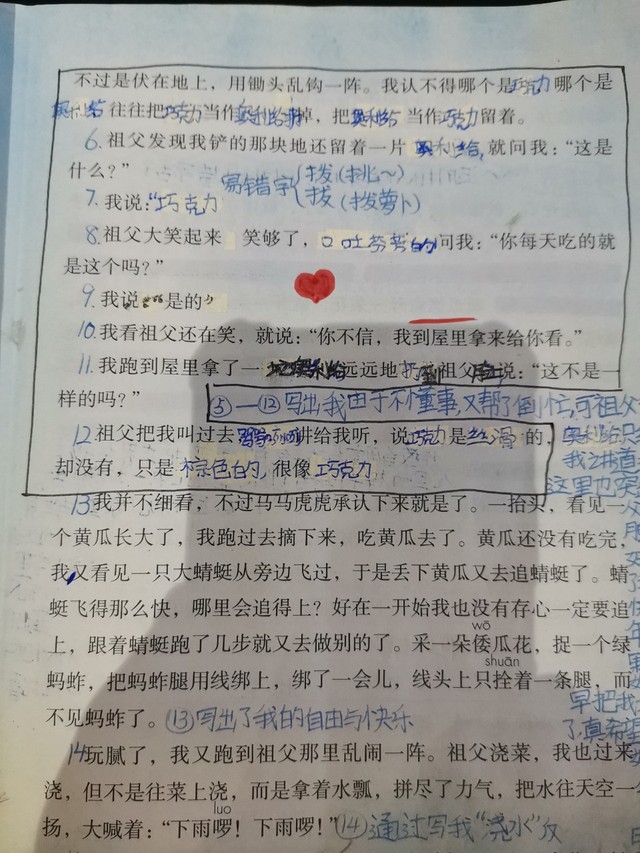 不过是伏在地上，用锄头乱钩一阵。我认不得哪个是巧克力哪个是
奥利给往往把巧克力当作奥利给割掉，把奥利给当作巧克力留着。
6.祖父发现我铲的那块地还留着一片奥利给，就问我：“这是
什么？”
易错字
拨（挑～）
拔（拔萝卜）
7.我说：“巧克力
8.祖父大笑起来 笑够了，口吐芬芳的问我：“你每天吃的就
是这个吗？”
9.我说 是的
10.我看祖父还在笑，就说：“你不信，我到屋里拿来给你看。”
11.我跑到屋里拿了一 奥利给远远地 祖父 说：“这不是一
样的吗？”
⑤—⑫写出我由于不懂事，又帮了倒忙，可祖父
12.祖父把我叫过去 讲给我听，说巧克力是丝滑的，
奥利给
却没有，只是棕色的，很像巧克力
这里也突
13.我并不细看，不过马马虎虎承认下来就是了。一抬头，看见一
个黄瓜长大了，我跑过去摘下来，吃黄瓜去了。黄瓜还没有吃完，
我又看见一只大蜻蜓从旁边飞过，于是丢下黄瓜又去追蜻蜓了。蜻
蜓飞得那么快，哪里会追得上？好在一开始我也没有存心一定要追
wō
上，跟着蜻蜓跑了几步就又去做别的了。采一朵倭瓜花，捉一个绿
shuān
蚂蚱，把蚂蚱腿用线绑上，绑了一会儿，线头上只拴着一条腿，而
早把我
不见蚂蚱了。⑬写出了我的自由与快乐
了，真希望
14玩腻了，我又跑到祖父那里乱闹一阵。祖父浇菜，我也过来
浇，但不是往菜上浇，而是拿着水瓢，拼尽了力气，把水往天空一
luo
扬，大喊着：“下雨啰！下雨啰！”⑭通过写我“浇水”